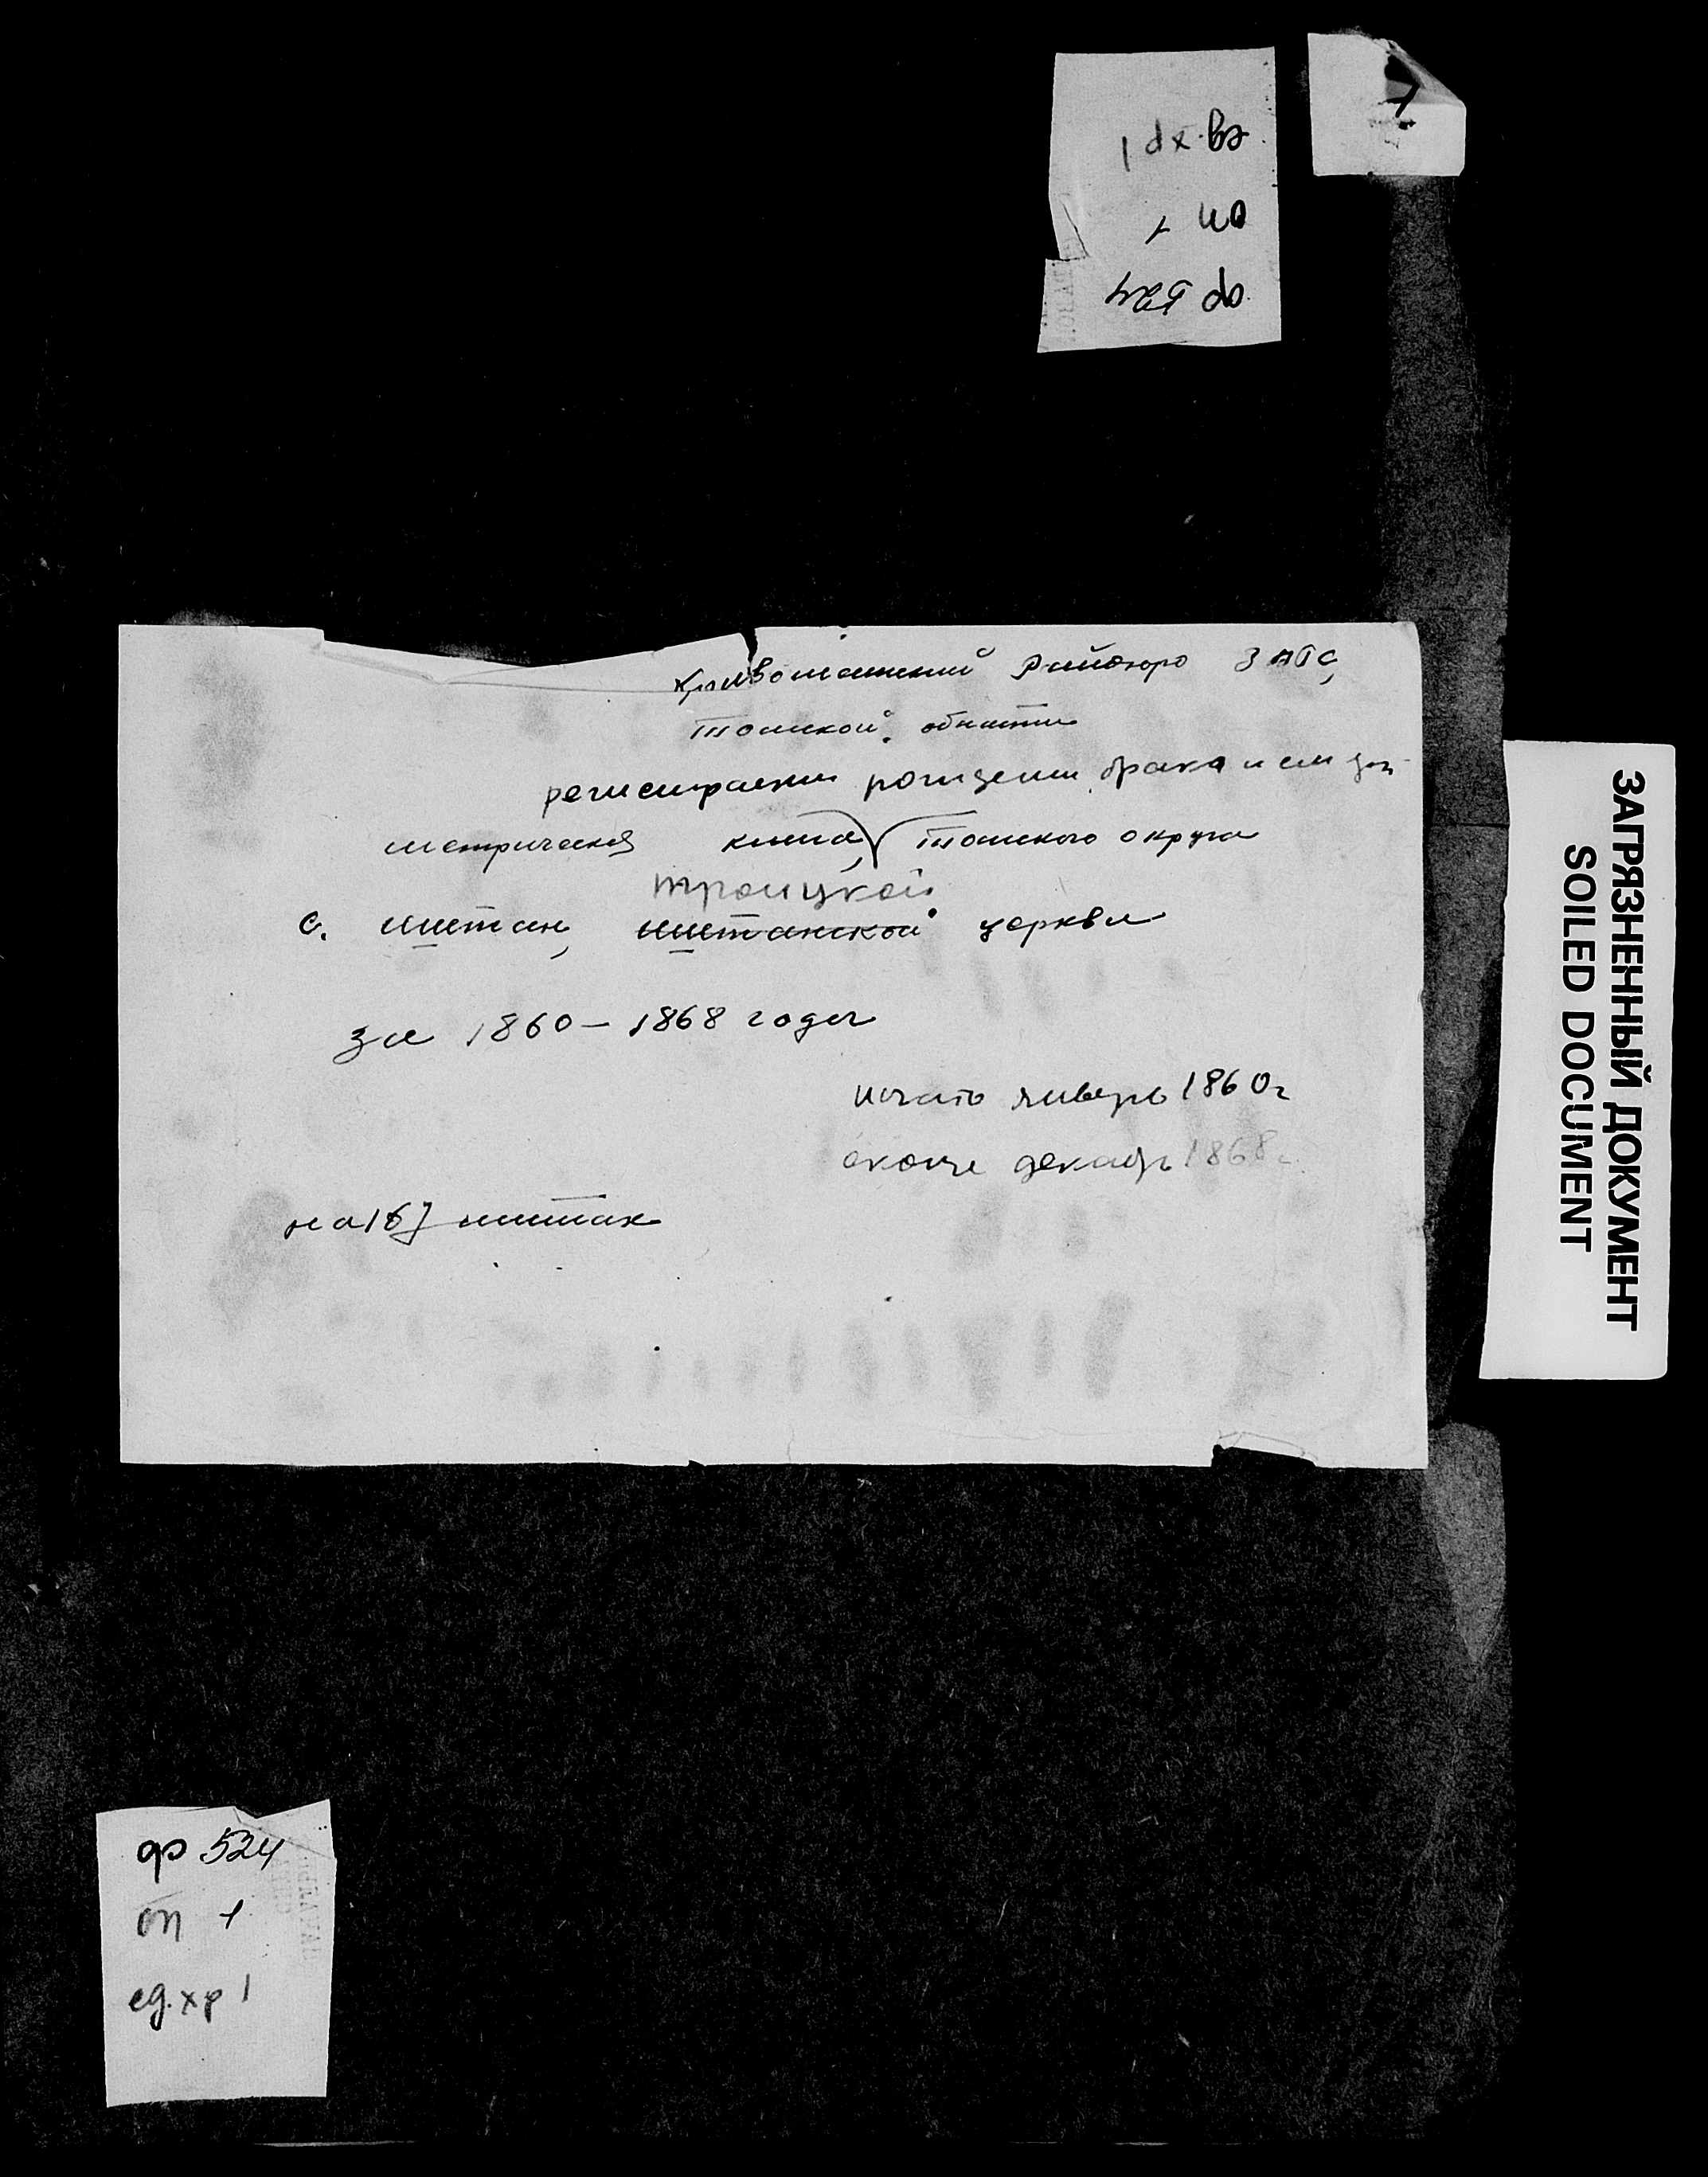 ф 524
оп 1
ед. хр 1
Кривошеинский Райбюро ЗАГС,
Томской области
регистрации рождении, брака и
метрическая книга, Томского округа
троицкой
с. Иштан, Иштанской церкви
за 1860 – 1868 годы
начато январь 1860 г
оконче декабрь 1868 г.
на 167 листах
ЗАГРЯЗНЕННЫЙ ДОКУМЕНТ
SOILED DOCUMENT
ф 524
оп 1
ед. хр 1